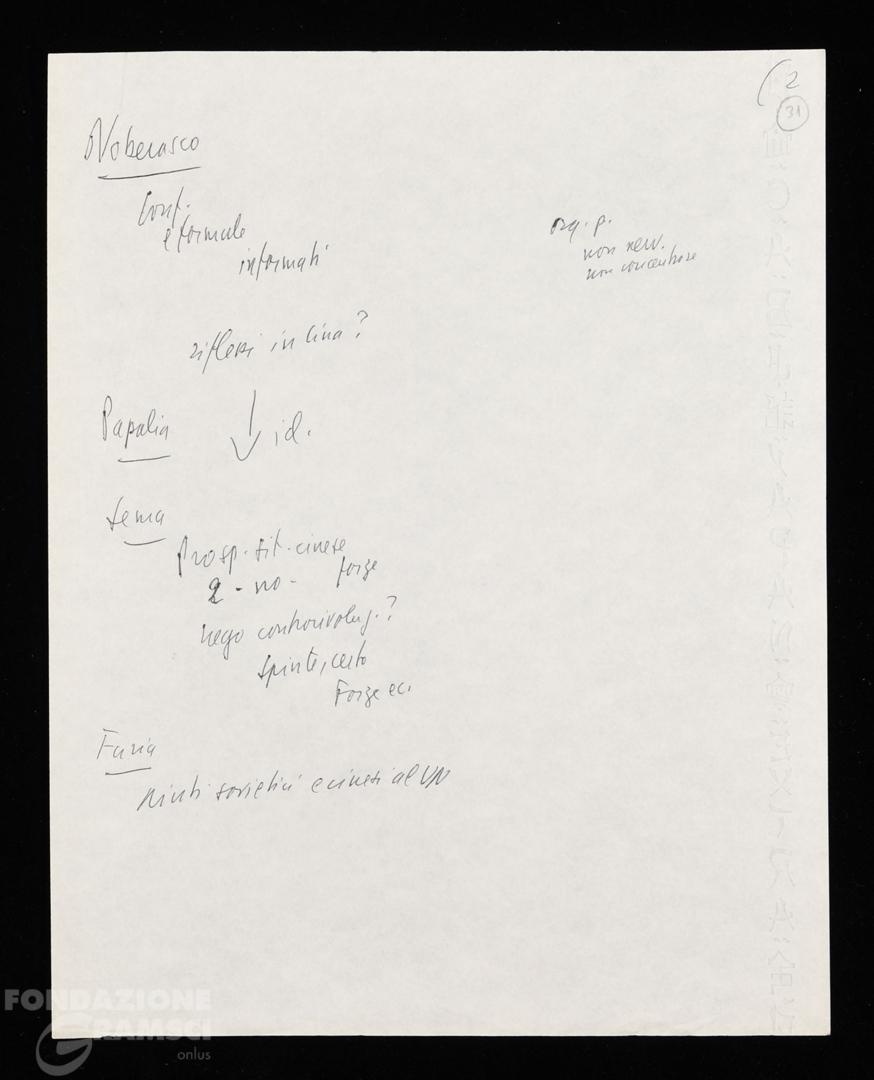 (2
31
Noberasco
Conf.
e formule
informati
org. p.
non nerv.
non concentrare
riflessi in Cina?
Papalia
id.
Sema
Prosp. sit. cinese
2 - no - forze
nego controrivoluz.?
Spinte, certo
Forze ec.
Furia
Aiuti sovietici e cinesi al VN
FONDAZIONE
GRAMSCI
onlus